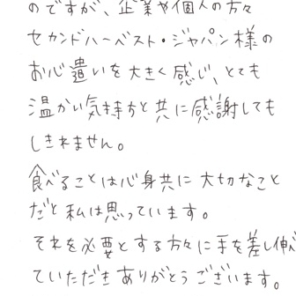 のですが、企業や個人の方々
セカンドハーベスト・ジャパン様の
お心遣いを大きく感じ、とても
温かい気持ちと共に感謝しても
しきれません。
食べることは心身共に大切なこと
だと私は思っています。
それを必要とする方々に手を差し伸べ
ていただきありがとうございます。